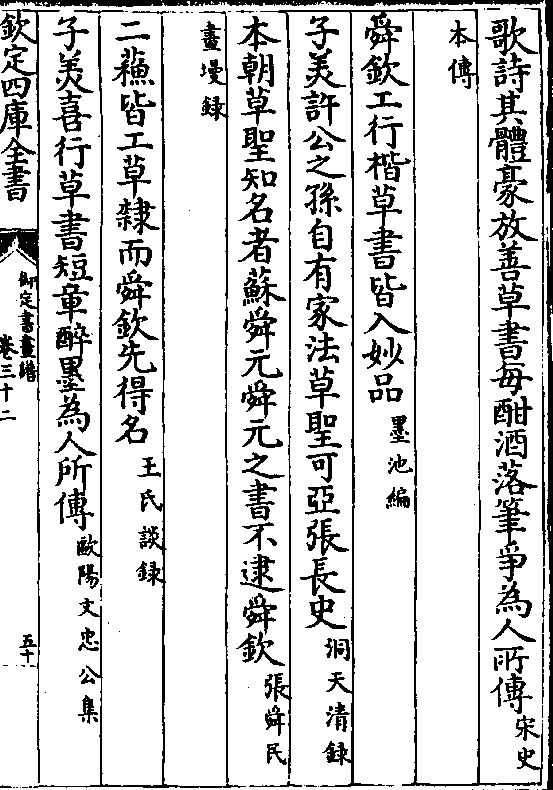 歌詩其體豪放善草書每酣酒落筆爭為人所傳宋史
本傳
舜欽工行楷草書皆入妙品墨池編
子美許公之孫自有家法草聖可亞張長史洞天清録
本朝草聖知名者蘇舜元舜元之書不逮舜欽張舜民
畫墁録
二蘓皆工草隸而舜欽先得名王氏談録
子美喜行草書短章醉墨為人所傳歐陽文忠公集
欽定四庫全書
御定書畫譜
卷三十二
五十